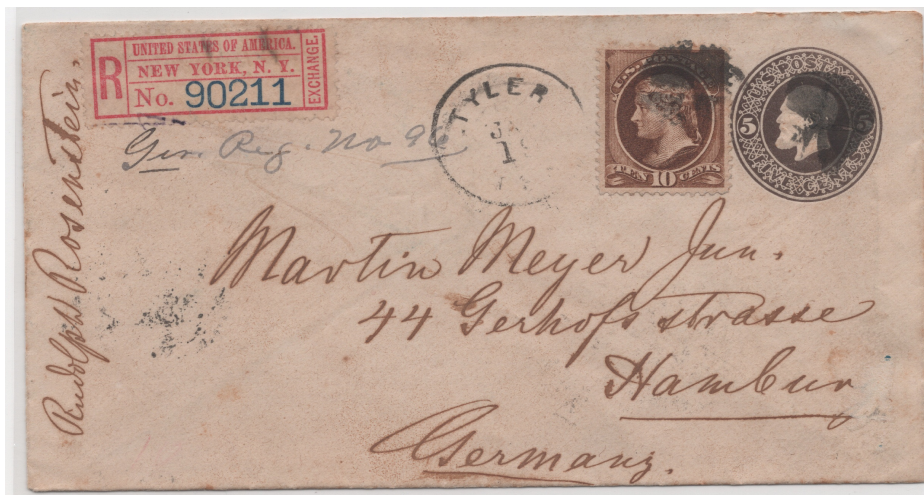 UNITED STATES OF AMERICA.
R
NEW YORK, N. Y.
No. 90211
EXCHANGE.
Reg. No
TYLER
1
TEN 10 CENTS
5 5
Rudolph Rosenstein,
Martin Meyer Jun.
44 Gerhofsstrasse
Hambur
Germany.